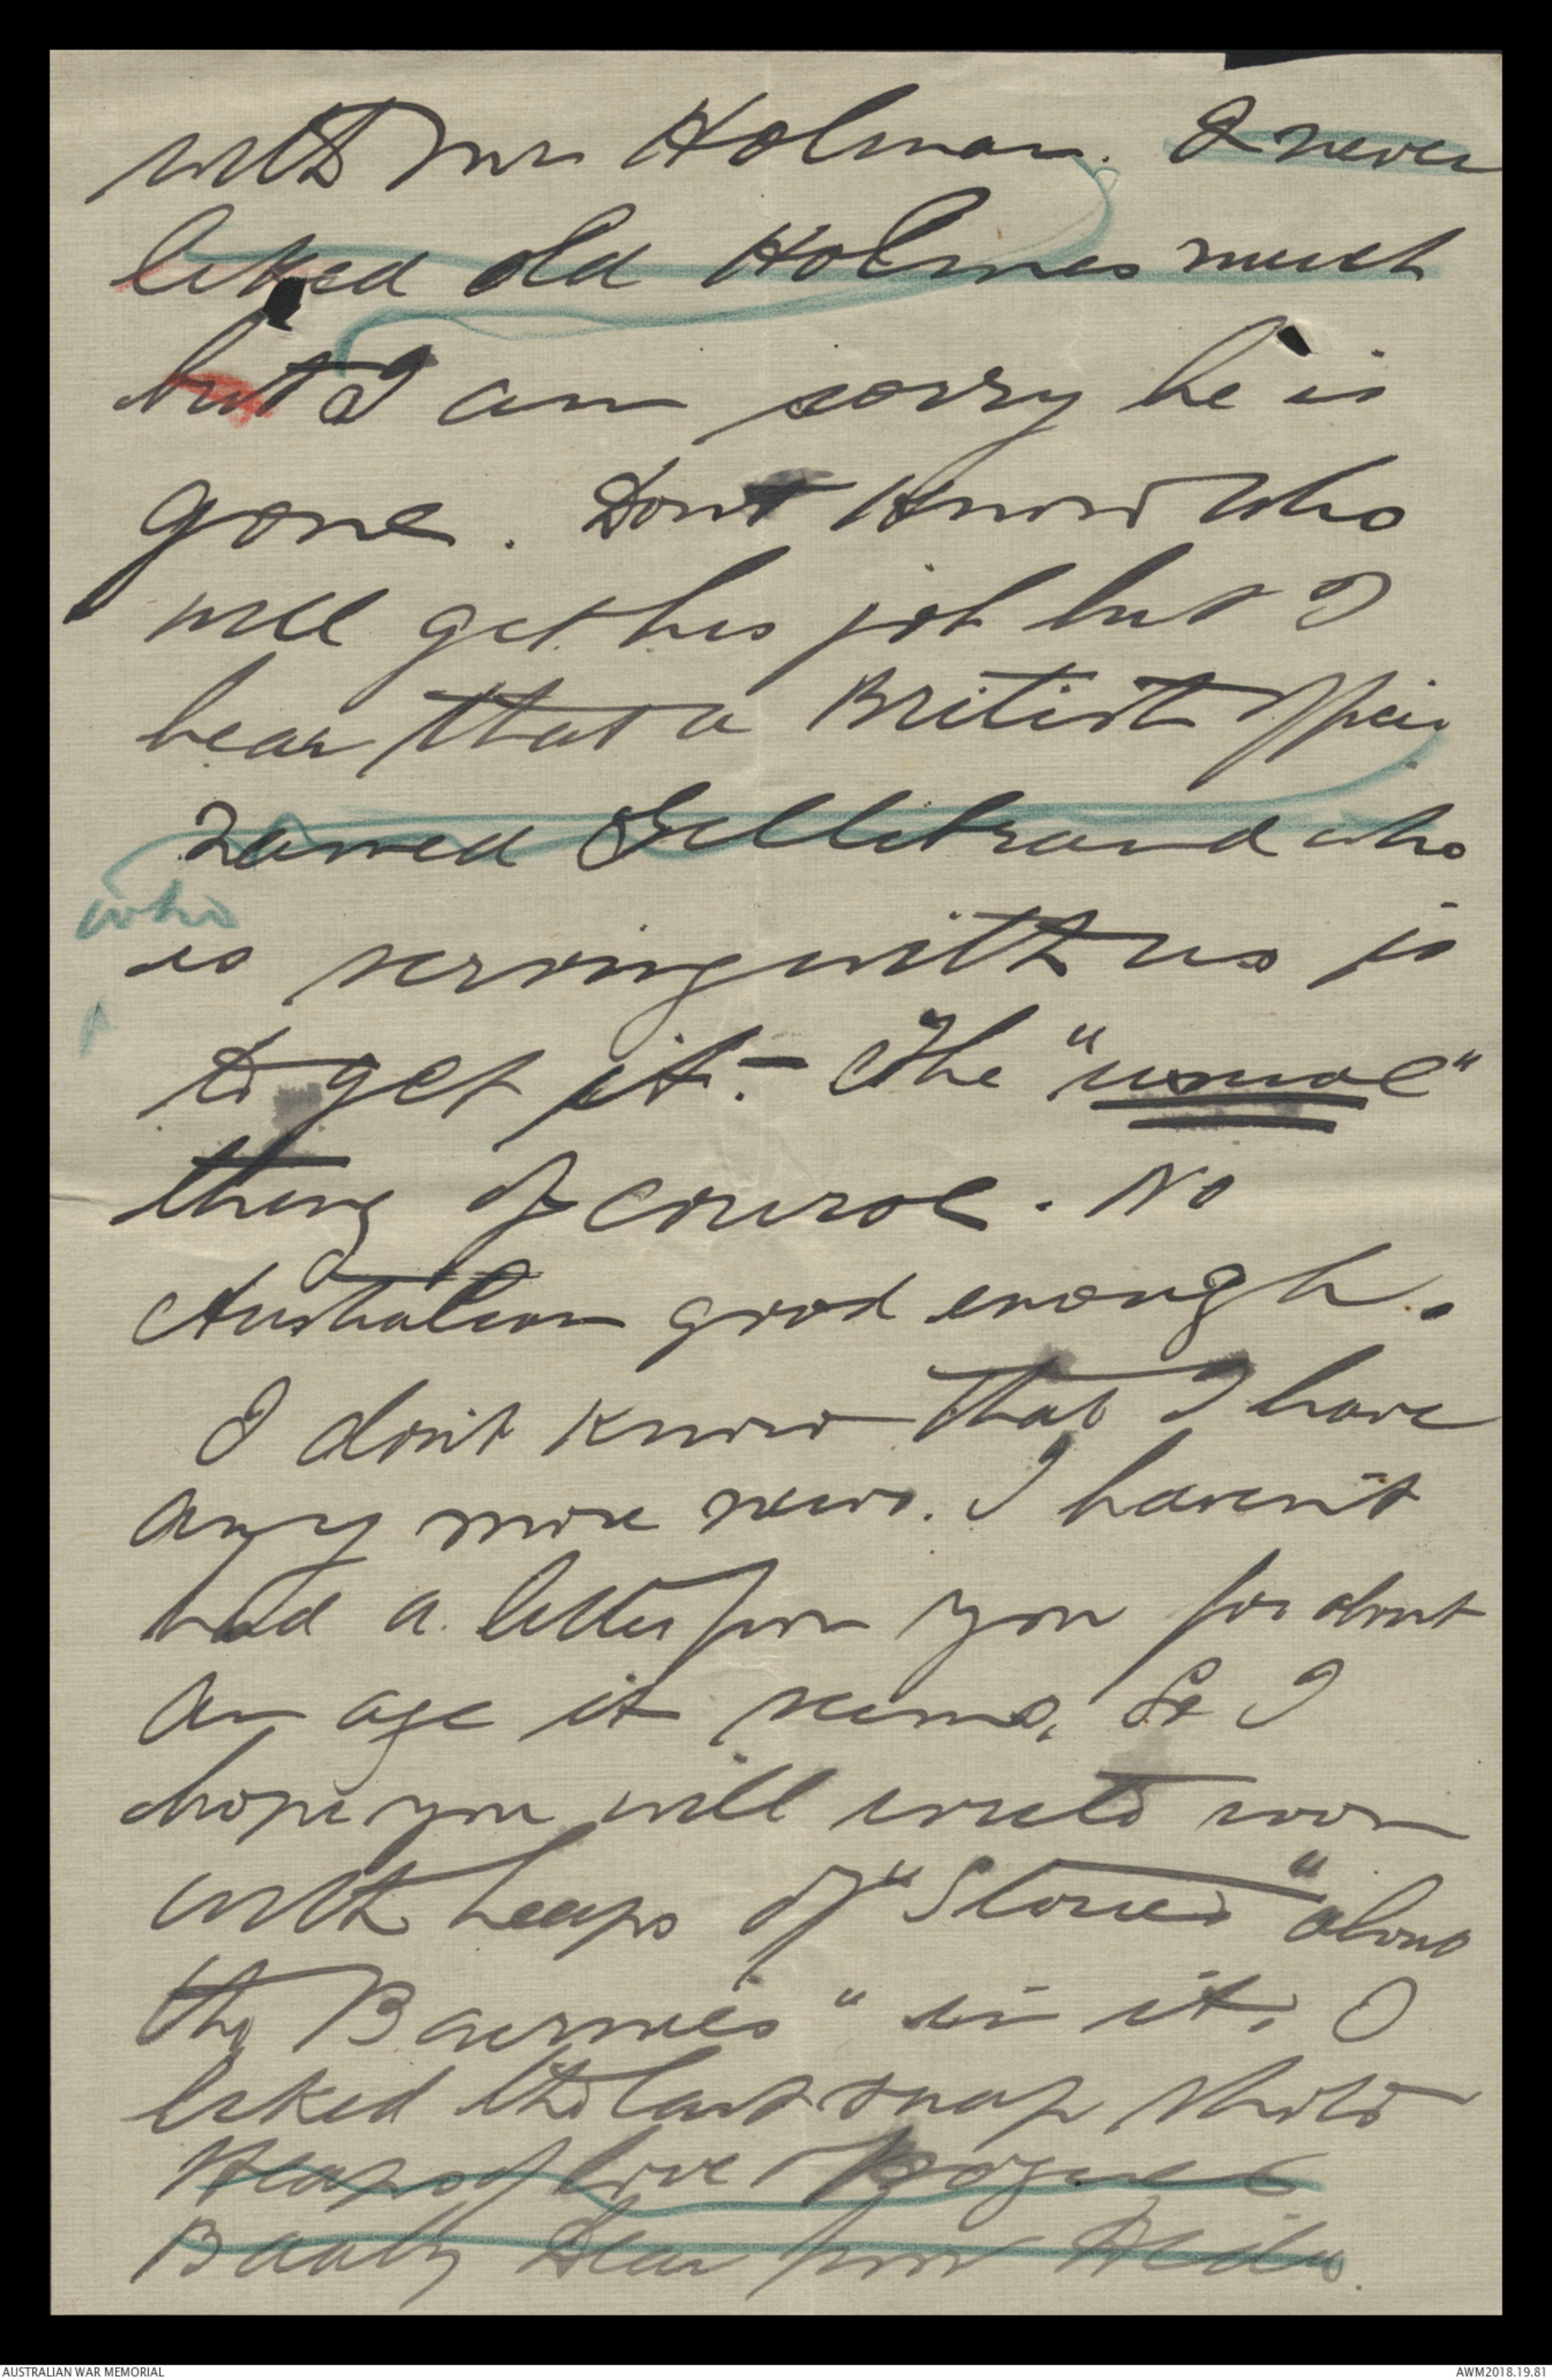 with Mr Holman. I never
liked old Holmes much
but I am sorry he is
gone. Dont know who
will get his job but I
hear that a British Officer
named Gellibrand who
who
is serving with us is
to get it. - The "usual"
thing of course. No
Australian good enough.
I don't know that I have
any more news. I haven't
had a letter from you for about
an age it seems, So I
hope you will write soon
with heaps of "Stories" about
the Baernies" in it, I
liked the last snap shots
Heaps of love
Baaby Dear from
AUSTRALIAN WAR MEMORIAL
AWM2018.19.81